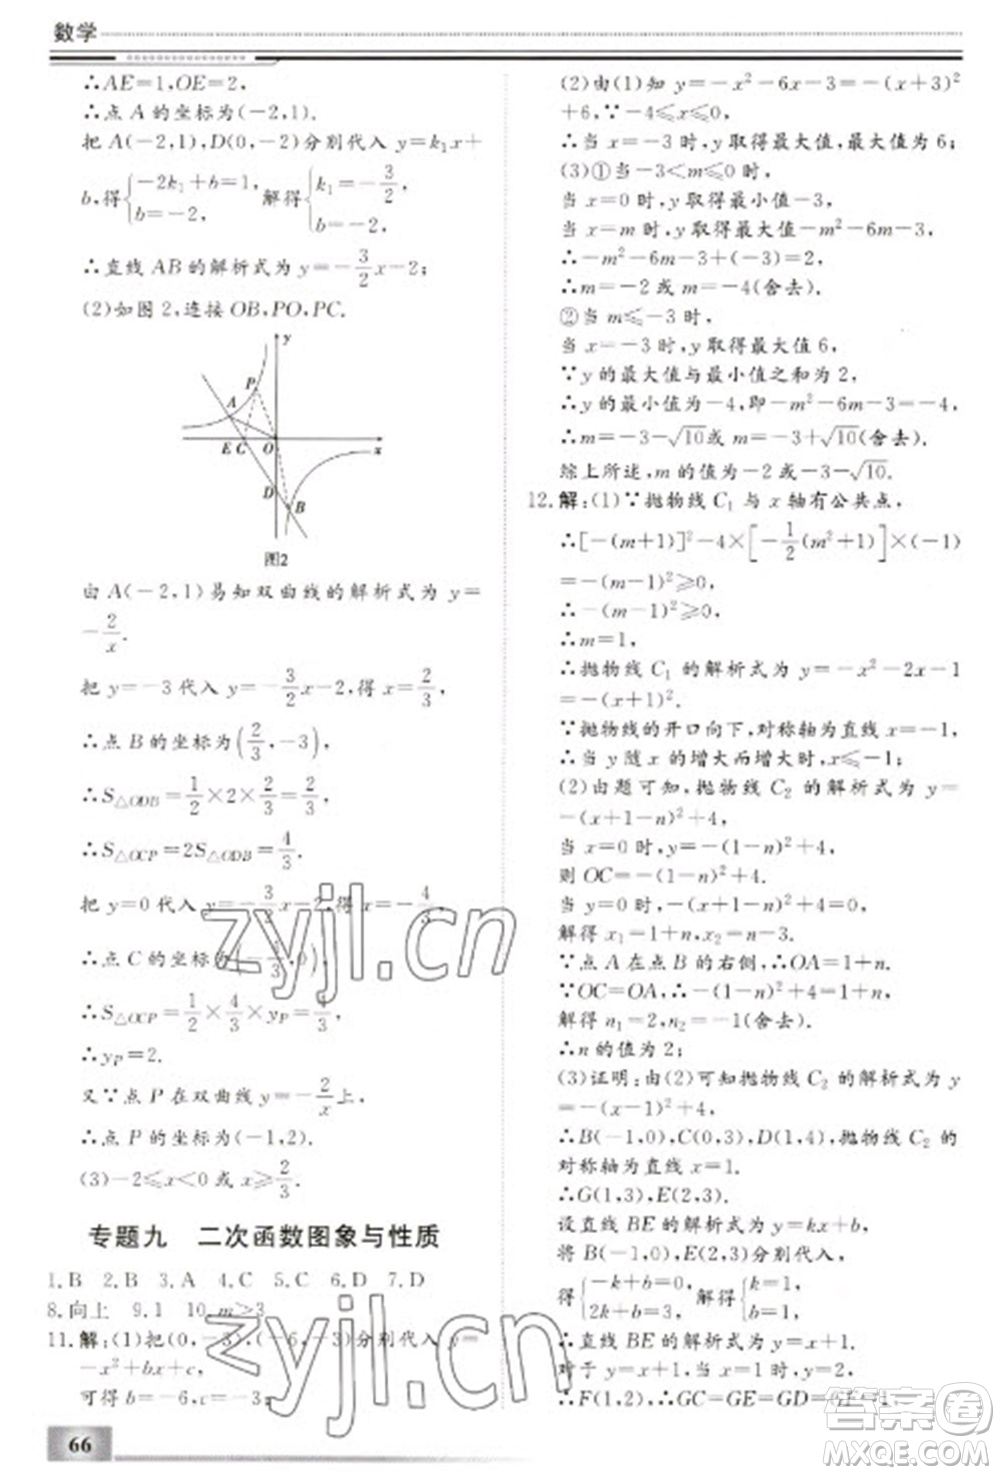 数学
∴AE=1,OE=2,
∴点 A 的坐标为(-2,1).
把 A(-2,1),D(0,-2)分别代入 y=k₁x+
b,得{-2k₁+b=1, b=-2, 解得{k₁=-3/2, b=-2.
∴直线 AB 的解析式为 y=-3/2x-2;
(2)如图 2,连接 OB,PO,PC.
y
P
A
E C O x
D
B
图2
由 A(-2,1)易知双曲线的解析式为 y=
-2/x.
把 y=-3代入 y=-3/2x-2,得 x=2/3,
∴点 B 的坐标为(2/3,-3),
∴S△ODB=1/2×2×2/3=2/3,
∴S△OCP=2S△ODB=4/3.
把 y=0代入 y=-3/2x-2,得 x=-4/3,
∴点 C 的坐标为(-4/3,0),
∴S△OCP=1/2×4/3×yP=4/3,
∴yP=2.
又∵点 P 在双曲线 y=-2/x上,
∴点 P 的坐标为(-1,2).
(3)-2≤x<0 或 x≥2/3.
专题九 二次函数图象与性质
1.B 2.B 3.A 4.C 5.C 6.D 7.D
8.向上 9.1 10.m≥3
11.解:(1)把(0,-3),(-6,-3)分别代入 y=
-x²+bx+c,
可得 b=-6,c=-3;
66
(2)由(1)知 y=-x²-6x-3=-(x+3)²
+6,∵-4≤x≤0,
∴当 x=-3 时,y 取得最大值,最大值为 6;
(3)①当-3<m≤0时,
当 x=0时,y 取得最小值-3,
当 x=m 时,y 取得最大值-m²-6m-3,
∴-m²-6m-3+(-3)=2,
∴m=-2 或 m=-4(舍去).
②当 m≤-3 时,
当 x=-3时,y 取得最大值 6,
∵y 的最大值与最小值之和为 2,
∴y 的最小值为-4,即-m²-6m-3=-4,
∴m=-3-√10或 m=-3+√10(舍去).
综上所述,m 的值为-2 或-3-√10.
12.解:(1)∵抛物线 C₁ 与 x 轴有公共点,
∴[-(m+1)]²-4×[-1/2(m²+1)]×(-1)
=-(m-1)²≥0,
∴-(m-1)²≥0,
∴m=1,
∴抛物线 C₁ 的解析式为 y=-x²-2x-1
=-(x+1)².
∵抛物线的开口向下,对称轴为直线 x=-1,
∴当 y 随 x 的增大而增大时,x≤-1;
(2)由题可知,抛物线 C₂ 的解析式为 y=
-(x+1-n)²+4,
当 x=0时,y=-(1-n)²+4,
则 OC=-(1-n)²+4.
当 y=0时,-(x+1-n)²+4=0,
解得 x₁=1+n,x₂=n-3.
∵点 A 在点 B 的右侧,∴OA=1+n.
∵OC=OA,∴-(1-n)²+4=1+n,
解得 n₁=2,n₂=-1(舍去).
∴n 的值为 2;
(3)证明:由(2)可知抛物线 C₂ 的解析式为 y
=-(x-1)²+4,
∴B(-1,0),C(0,3),D(1,4),抛物线 C₂ 的
对称轴为直线 x=1.
∴G(1,3),E(2,3).
设直线 BE 的解析式为 y=kx+b,
将 B(-1,0),E(2,3)分别代入,
得{-k+b=0, 2k+b=3, 解得{k=1, b=1,
∴直线 BE 的解析式为 y=x+1.
对于 y=x+1,当 x=1时,y=2,
∴F(1,2),∴GC=GE=GD=GF=1,
zyjl.cn
zyjl.cn
答案圈
MXQE.COM